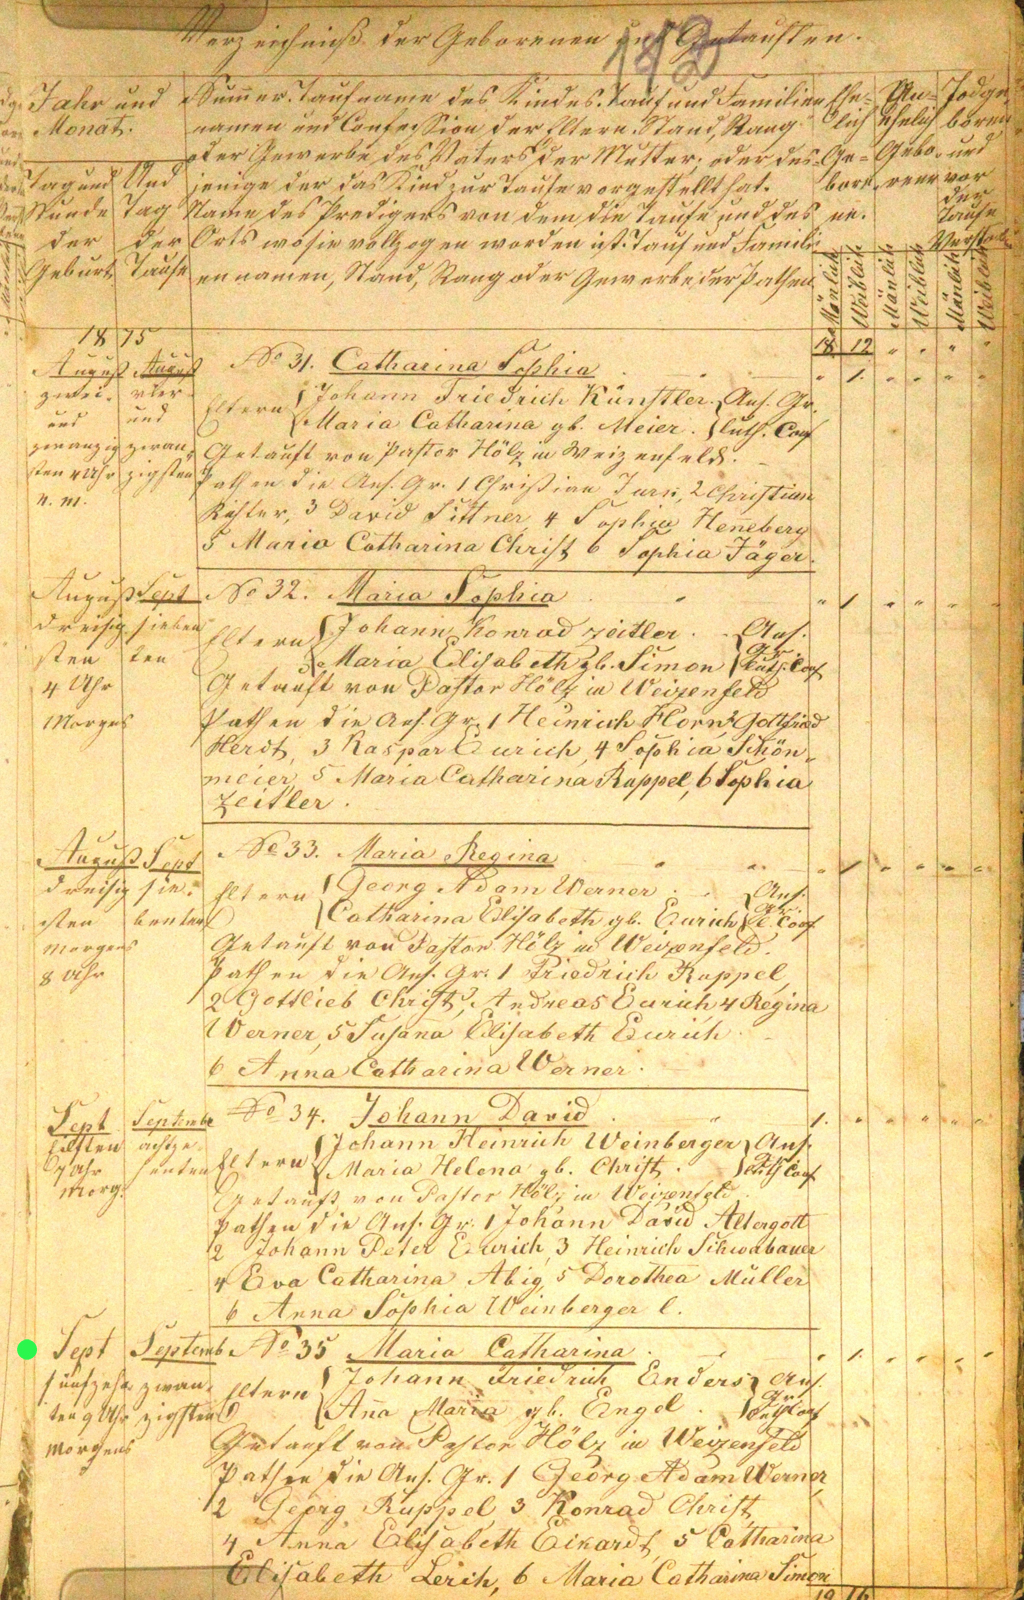 Verzeichniß der Geborenen und Getauften.
Jahr und
Monat.
Tag und
Stunde
der
Geburt
Und
Tag
der
Taufe
Numer. Taufname des Kindes. Tauf und Familien
namen und Confession der Eltern. Stand, Rang
oder Gewerbe des Vaters der Mutter, oder des-
jenige der das Kind zur Taufe vorgestellt hat.
Name des Predigers von dem die Taufe und des
Orts wo sie vollzogen worden ist. Tauf und Famili
en namen, Stand, Rang oder Gewerbe der Pathen
Ehe-
lich
Ge-
bore
ne.
Un-
ehelich
Gebo-
rene
Todge
boren
und
vor
der
Taufe
Verstorb
Mänlich
Weiblich
Mänlich
Weiblich
Mänlich
Weiblich
18 75
18 12 " " " "
August
zwei-
und
zwanzig
sten 4 Uhr
n. m.
August
vier
und
zwan-
zigsten
No 31. Catharina Sophia " 1. " " " "
Eltern { Johann Friedrich Künstler. } Ans. Gr.
Maria Catharina gb. Meier. } luth. Conf
Getauft von Pastor Hölz in Weizenfeld.
Pathen die Ans. Gr. 1 Christian 2 Christian
Richter, 3 David Sittner 4 Sophia Heneberg
5 Maria Catharina Christ 6 Sophia Jäger.
August
dreisig
sten
4 Uhr
Morgens
Sept
sieben
ten
No 32. Maria Sophia " " 1 " " " "
Eltern { Johann Konrad Zeitler. } Ans.
Gr.
Maria Elisabeth gb. Simon } luth. Conf
Getauft von Pastor Hölz in Weizenfeld
Pathen die Ans. Gr. 1 Heinrich Horn 2 Gottfried
Herdt, 3 Kaspar Eurich, 4 Sophia Schön-
meier, 5 Maria Catharina Ruppel, 6 Sophia
Zeitler.
August
dreisig
sten
Morgens
8 Uhr
Sept
sie-
benten
No 33. Maria Regina " " 1 " " " "
Eltern { Georg Adam Werner. } Ans.
Gr.
Catharina Elisabeth gb. Eurich } l. Conf
Getauft von Pastor Hölz in Weizenfeld.
Pathen die Ans. Gr. 1 Friedrich Ruppel,
2 Gottlieb Christ, 3 Andreas Eurich 4 Regina
Werner, 5 Susana Elisabeth Eurich
6 Anna Catharina Werner.
Sept
Elften
7 Uhr
Morg.
Septembr
achtze-
henten
No 34. Johann David " 1. " " " " "
Eltern { Johann Heinrich Weinberger } Ans.
Gr.
Maria Helena gb. Christ. } luth Conf
Getauft von Pastor Hölz in Weizenfeld
Pathen die Ans. Gr. 1 Johann David Altergott
2 Johann Peter Eurich, 3 Heinrich Schwabauer
4 Eva Catharina Abig, 5 Dorothea Müller
6 Anna Sophia Weinberger l.
Sept
funfzehn
ten 9 Uhr
Morgens
Septemb
zwan-
zigsten
No 35 Maria Catharina " 1. " " " "
Eltern { Johann Friedrich Enders } Ans.
Gr.
Anna Maria gb. Engel. } luth Conf
Getauft von Pastor Hölz in Weizenfeld
Pathen die Ans. Gr. 1 Georg Adam Werner
2 Georg Ruppel, 3 Konrad Christ
4 Anna Elisabeth Eckardt, 5 Catharina
Elisabeth Lerich, 6 Maria Catharina Simon
19 16